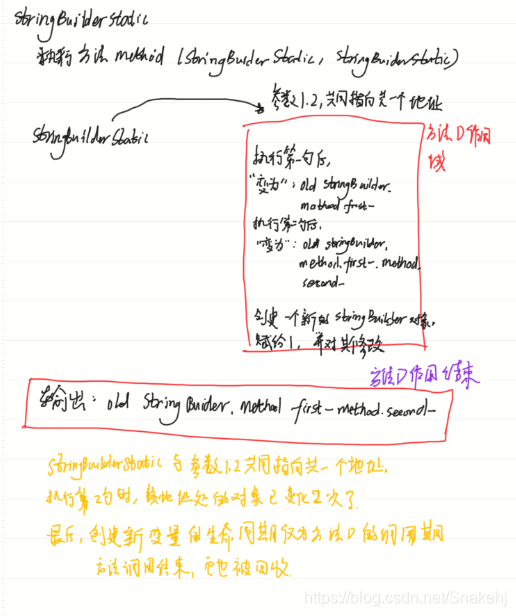 StringBuilderStatic
执行方法 method (StringBuiderStatic, StringBuiderStatic)
参数1.2,共同指向共一个地址
StringBuilderStatic
方法D作用
域
执行第一句后,
"变为": old stringBuilder.
method.first-
执行第二句后,
"变为": old stringBuilder,
method.first-.method.
second-
创建一个新的 stringBuilder 对象.
赋给1, 并对其修改
方法D作用结束
输出: old StringBuider. method first-method.second-
StringBuilderStatic 与参数1.2共同指向共一个地址.
执行第2句时, 该地址处的对象已变化2次了.
最后, 创建新变量的生命周期仅为方法D的调用期间
方法调用结束, 它也被回收.
https://blog.csdn.net/Snakehj